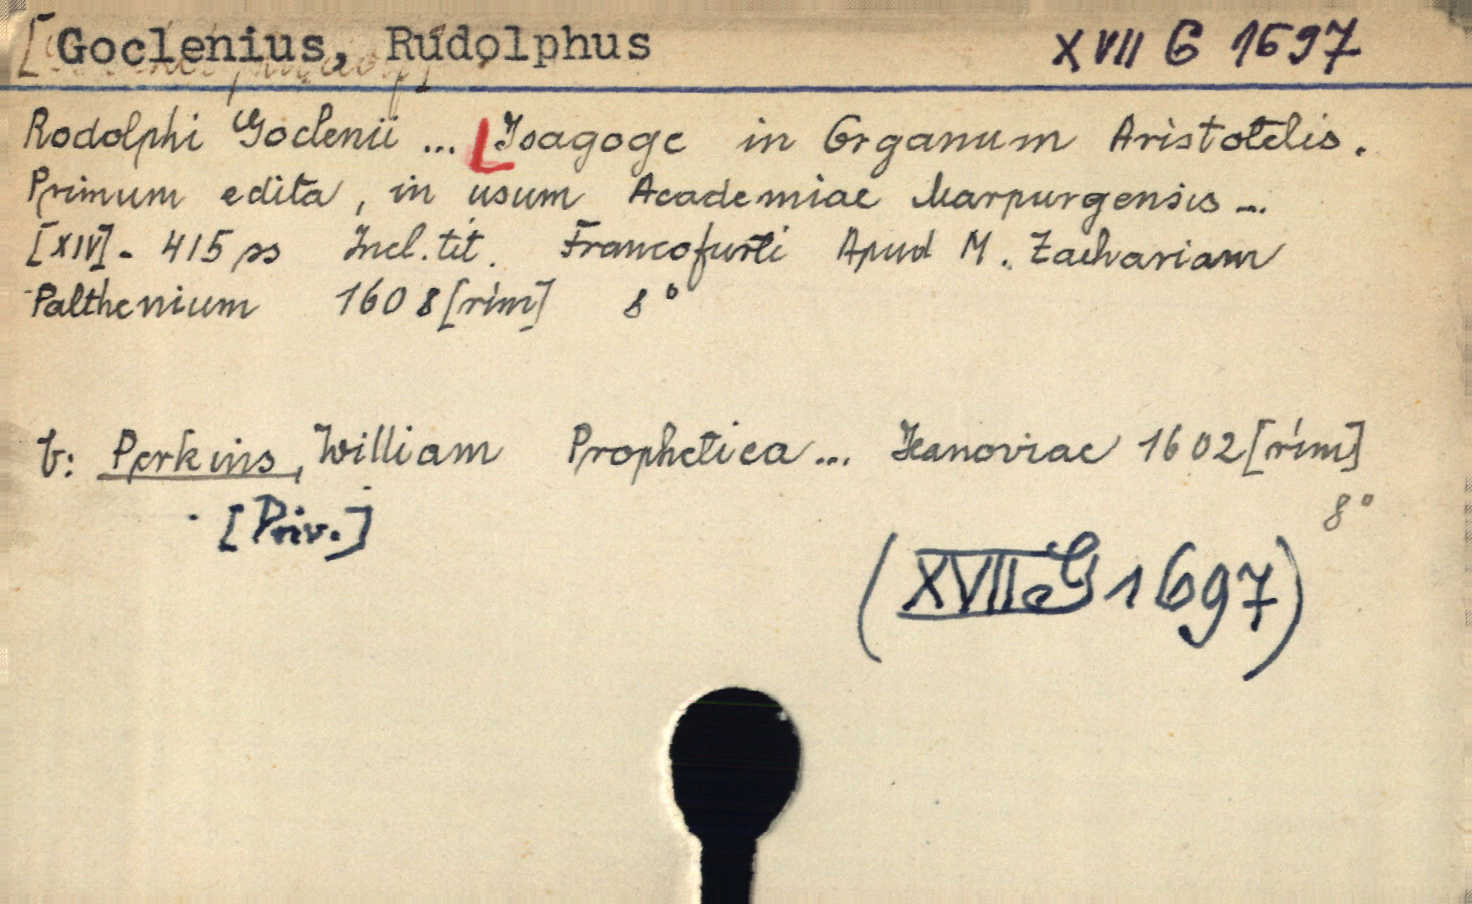 Goclenius, Rudolphus XVII G 1697
Rodolphi Goclenii ... Isagoge in Organum Aristotelis.
Primum edita, in usum Academiae Marpurgensis ...
[XIV]- 415 ss Incl. tit. Francofurti Apud M. Zachariam
Palthenium 1608 [rím] 8°
b: Perkins, William Prophetica ... Hanoviae 1602 [rím]
8°
[Priv.]
(XVII G 1697)